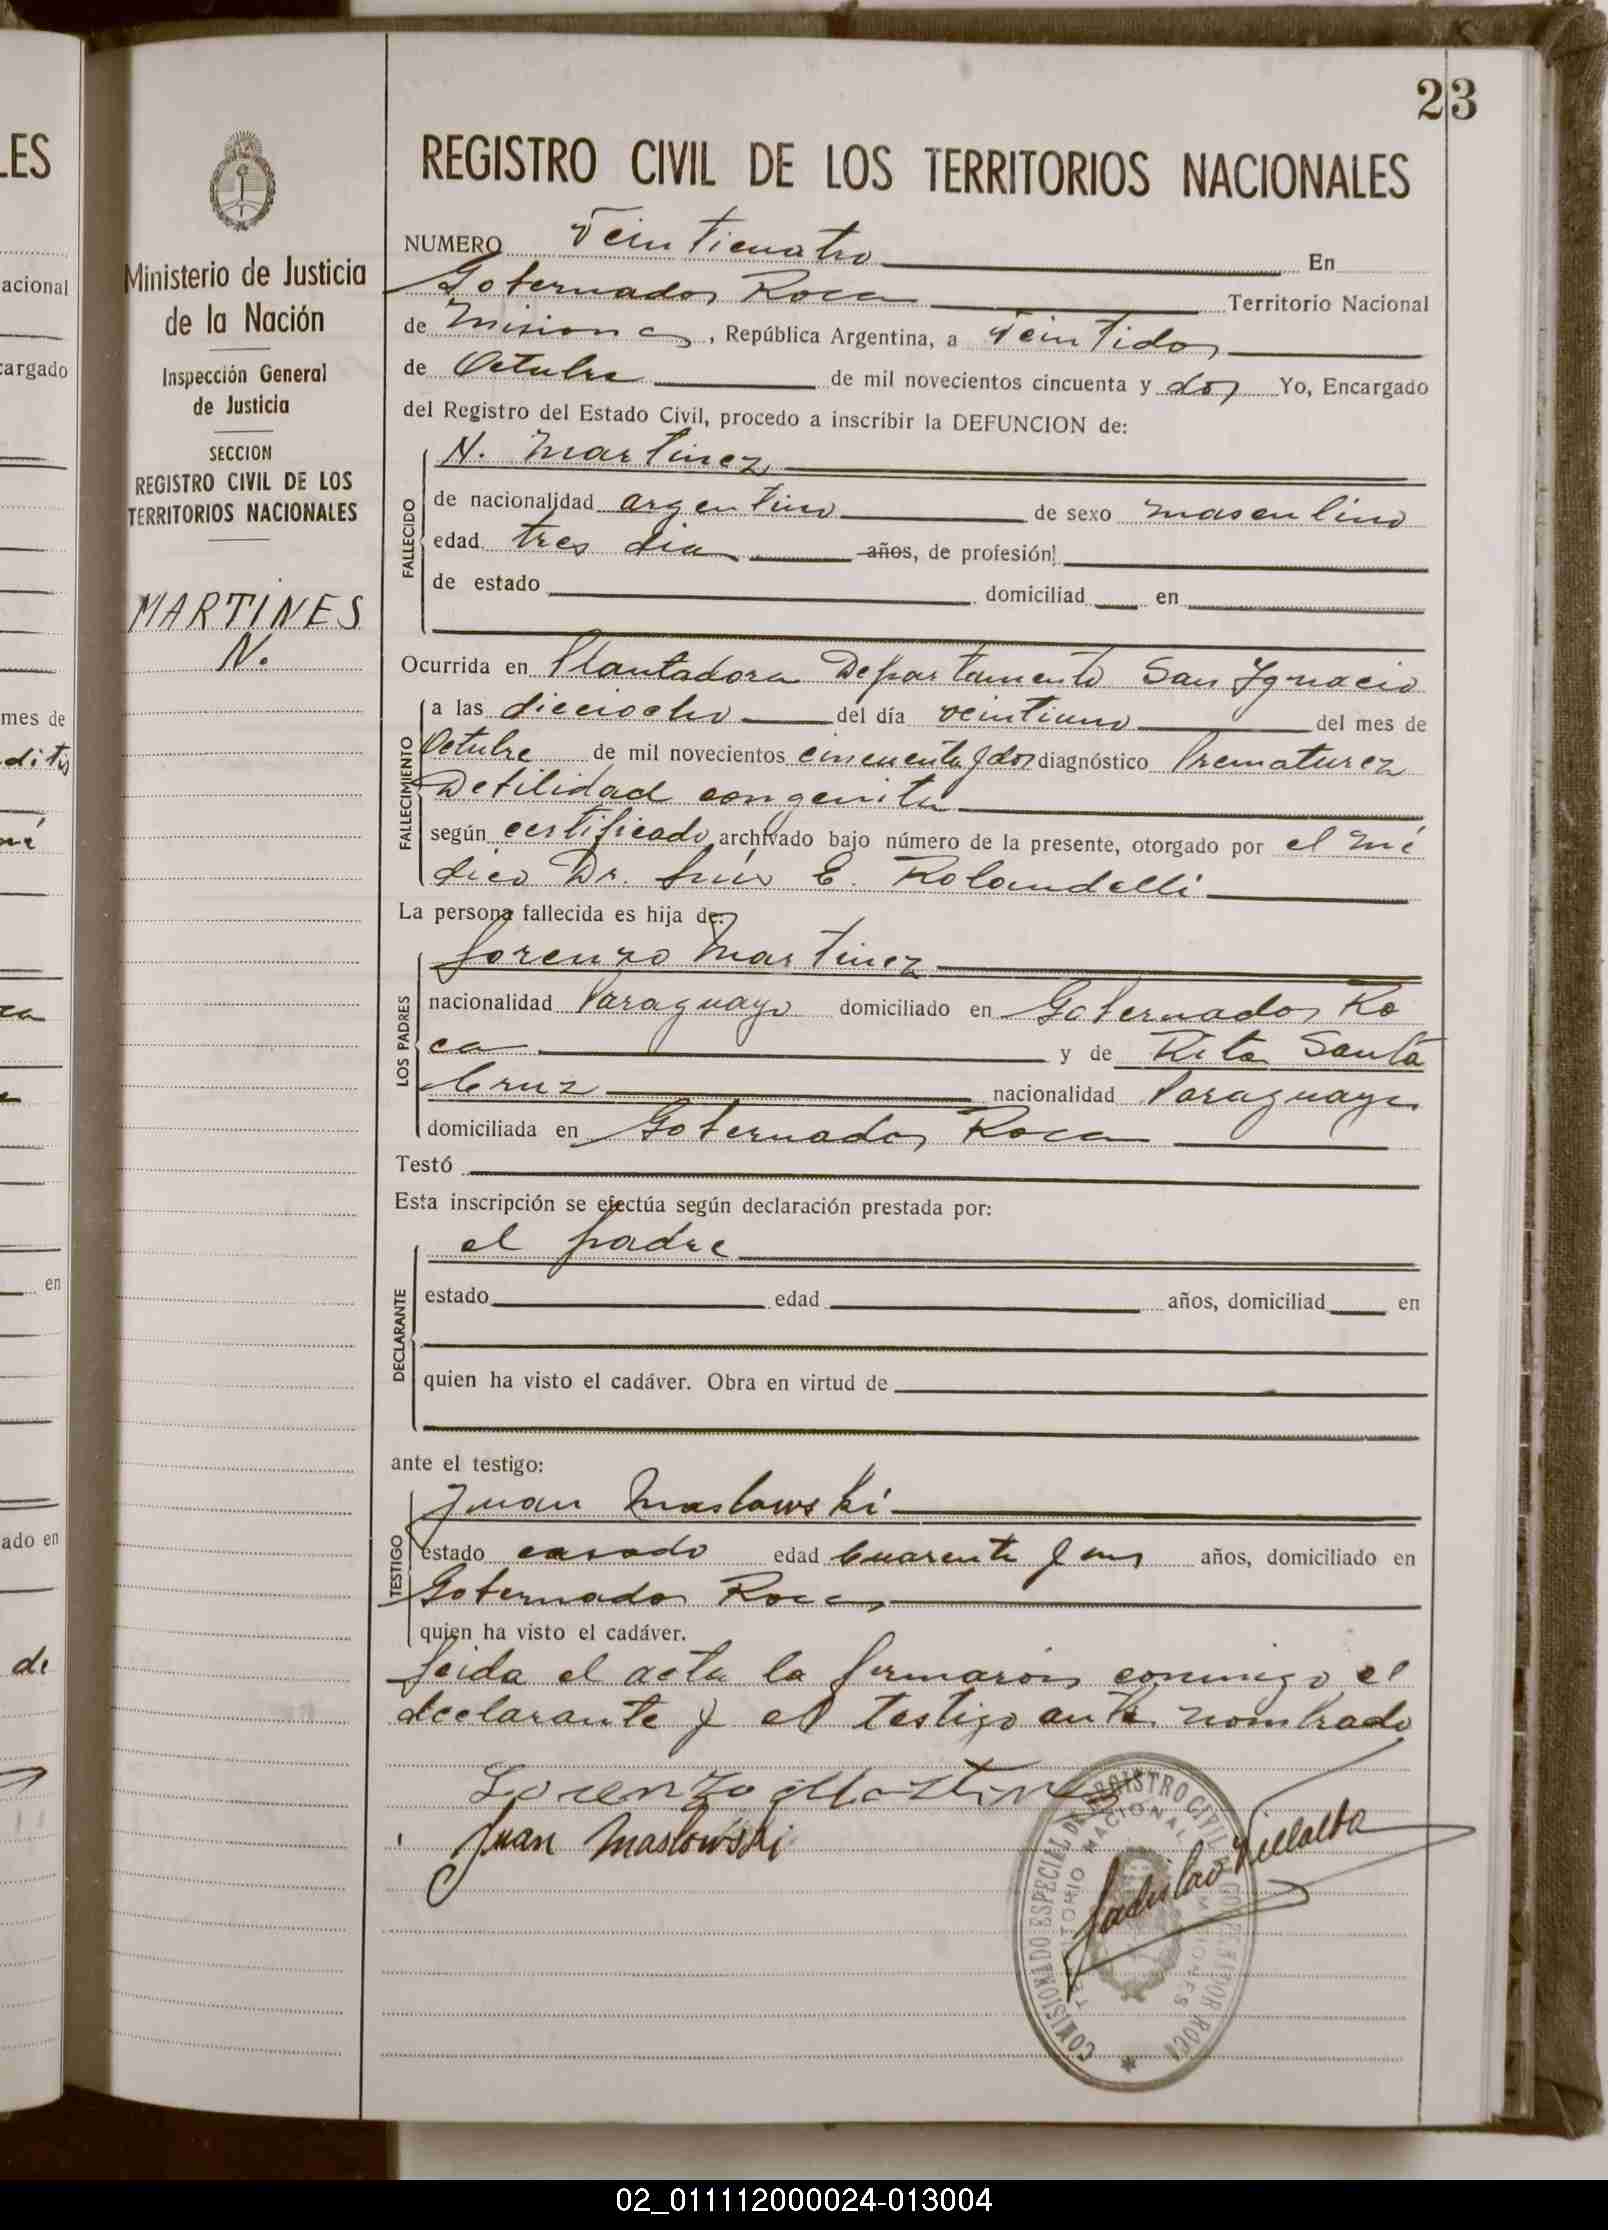 23
REGISTRO CIVIL DE LOS TERRITORIOS NACIONALES
Ministerio de Justicia
de la Nación
Inspección General
de Justicia
SECCION
REGISTRO CIVIL DE LOS
TERRITORIOS NACIONALES
MARTINES
N.
NUMERO Veinticuatro En
Gobernador Roca Territorio Nacional
de Misiones, República Argentina, a Veintidos
de Octubre de mil novecientos cincuenta y dos Yo, Encargado
del Registro del Estado Civil, procedo a inscribir la DEFUNCION de:
N. Martinez
FALLECIDO
de nacionalidad argentino de sexo masculino
edad tres dia años, de profesión
de estado domiciliad en
Ocurrida en Plantadora Departamento San Ignacio
FALLECIMIENTO
a las dieciocho del día veintiuno del mes de
Octubre de mil novecientos cincuenta y dos diagnóstico Prematurez
Debilidad congenita
según certificado archivado bajo número de la presente, otorgado por el mé
dico Dr. Luis E. Rolandelli
La persona fallecida es hija de:
LOS PADRES
Lorenzo Martinez
nacionalidad Paraguayo domiciliado en Gobernador Ro
ca y de Rita Santa
Cruz nacionalidad Paraguaya
domiciliada en Gobernador Roca
Testó
Esta inscripción se efectúa según declaración prestada por:
DECLARANTE
el padre
estado edad años, domiciliad en
quien ha visto el cadáver. Obra en virtud de
ante el testigo:
TESTIGO
Juan Maslowski
estado casado edad Cuarenta y uno años, domiciliado en
Gobernador Roca
quien ha visto el cadáver.
Leida el acta la firmaron conmigo el
declarante y el testigo ante nombrado
Lorenzo Martinez
Juan Maslowski
Ladislao Villalba
COMISIONADO ESPECIAL DEL REGISTRO CIVIL GOBERNADOR ROCA
TERRITORIO NACIONAL MISIONES
LES
acional
cargado
mes de
en
ado en
de
02_011112000024-013004